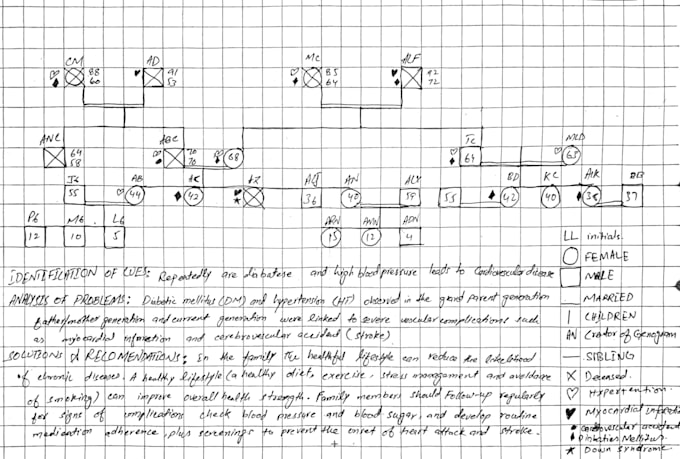 CM AD MC ALF
88 60
91 53
85 64
92 72
ANC ABC TC MLD
64 58
70 70
68
64
63
JG AB AC AZ AG AN ALY BD KC AIK BB
55 44 42 36 40 59 55 42 40 38 37
PG MG. LG
12 10 5
ARN ANN ADN
15 12 4
LL initials.
FEMALE
MALE
MARRIED
CHILDREN
AN Creator of Genogram
SIBLING
Deceased.
Hypertention.
Myocardial infaration
Cardiovascular accident
Diabaties Mellitus.
Down syndrome
IDENTIFICATION OF CUES: Repeatedly are diabatase and high blood pressure leads to Cardiovascular disease
ANALYSIS OF PROBLEMS: Diabatic mellitus (DM) and hypertension (HF) observed in the grand parent generation
father/mother generation and current generation were linked to severe vascular complications such
as myocardial infaration and cerebrovascular accident (stroke)
SOLUTIONS & RECOMENDATIONS: In the family the healthful lifestyle can reduce the likelihood
of chronic diseases. A healthy lifestyle (a healthy diet, exercise, stress management and avoidance
of smoking) can improve overall health strength. Family members should follow-up regularly
for signs of complications check blood pressure and blood sugar, and develop routine
medication adherence, plus screenings to prevent the onset of heart attack and stroke.